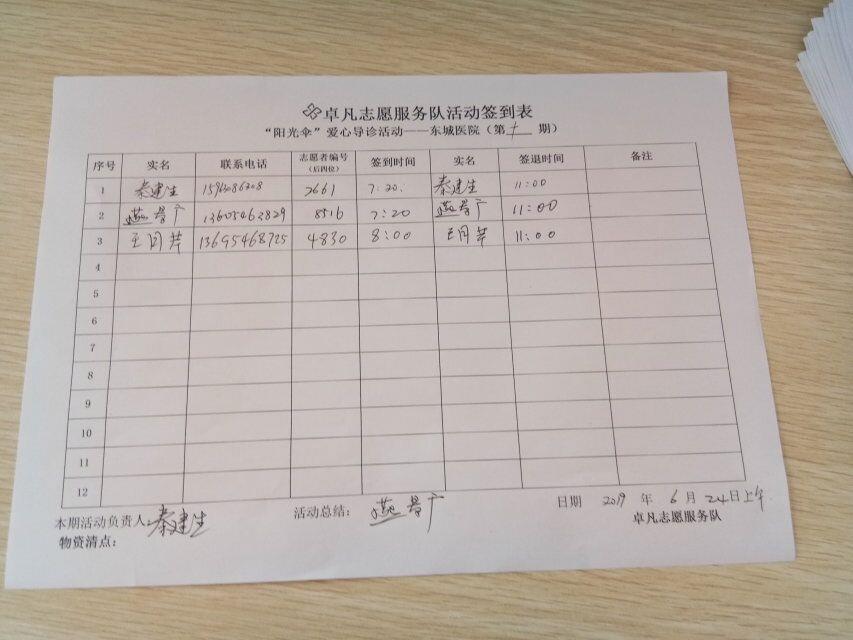 卓凡志愿服务队活动签到表
“阳光伞”爱心导诊活动——东城医院（第十一期）
序号 实名 联系电话 志愿者编号（后四位） 签到时间 实名 签退时间 备注
1 秦建生 2661 7:20. 秦建生 11:00
2 13605463829 8516 7:20 11:00
3 王月芹 13695468725 4830 8:00 王月芹 11:00
4
5
6
7
8
9
10
11
12
本期活动负责人 秦建生 活动总结： 日期 2019 年 6 月 24日上午
物资清点： 卓凡志愿服务队